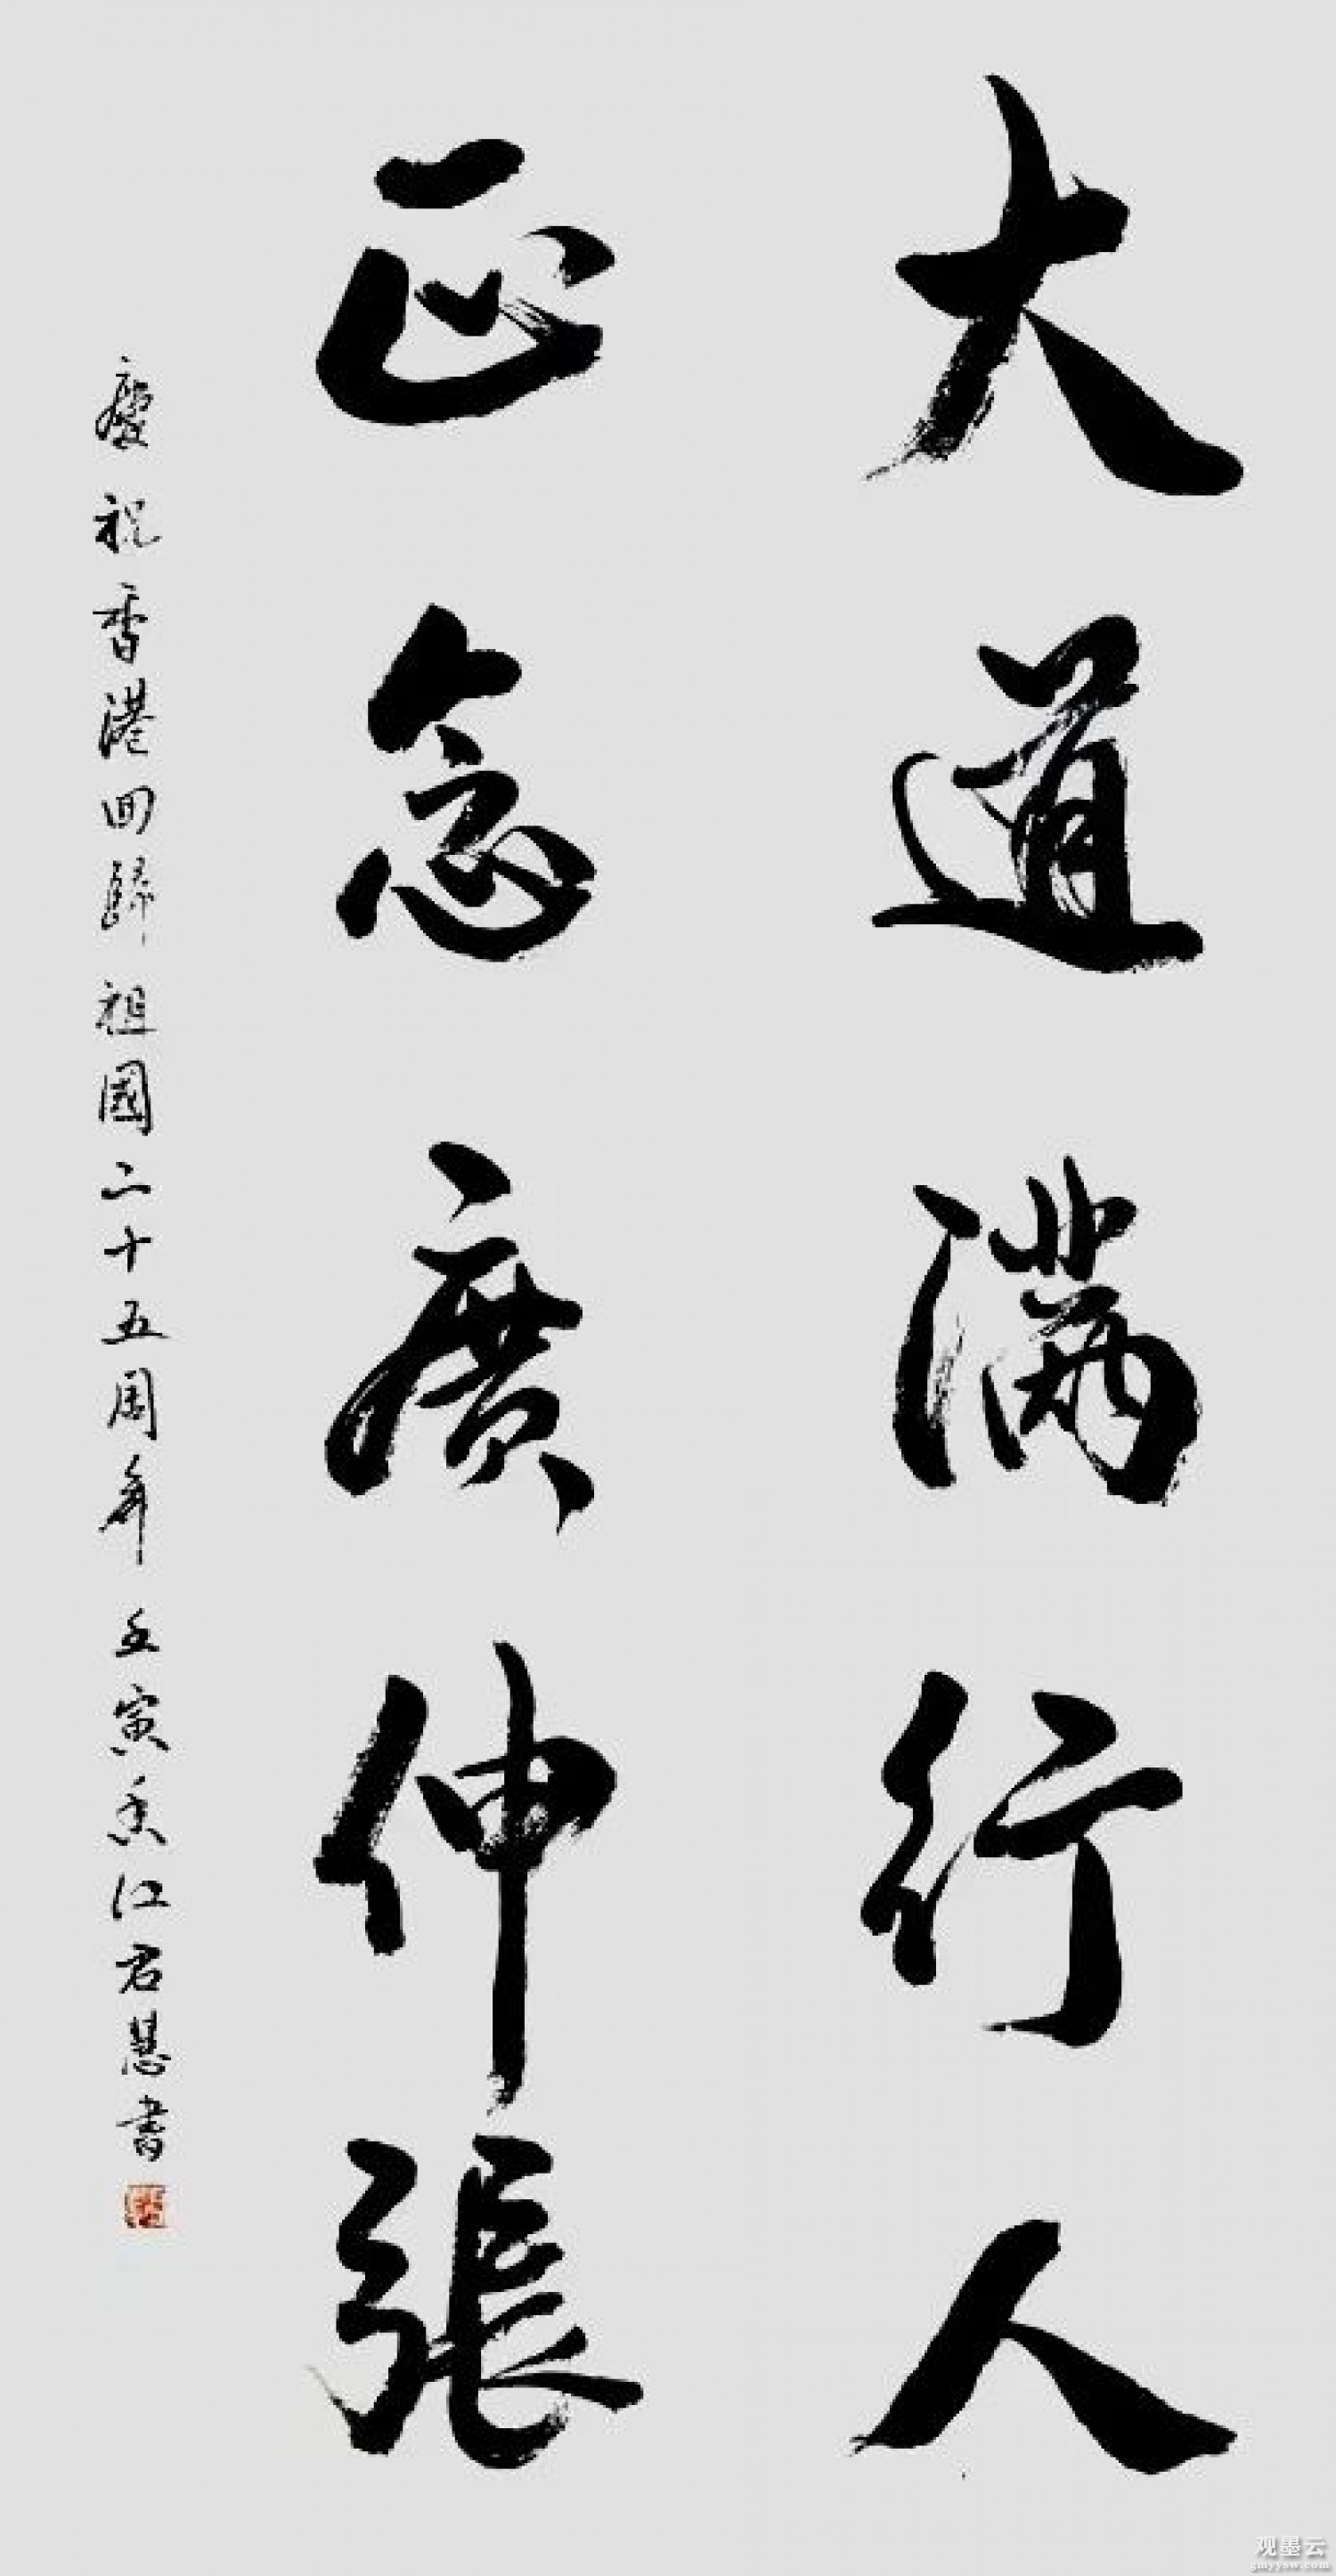 大道滿行人
正念廣伸張
慶祝香港回歸祖國二十五周年 壬寅香江君湛書
观墨云
gmyysw.com